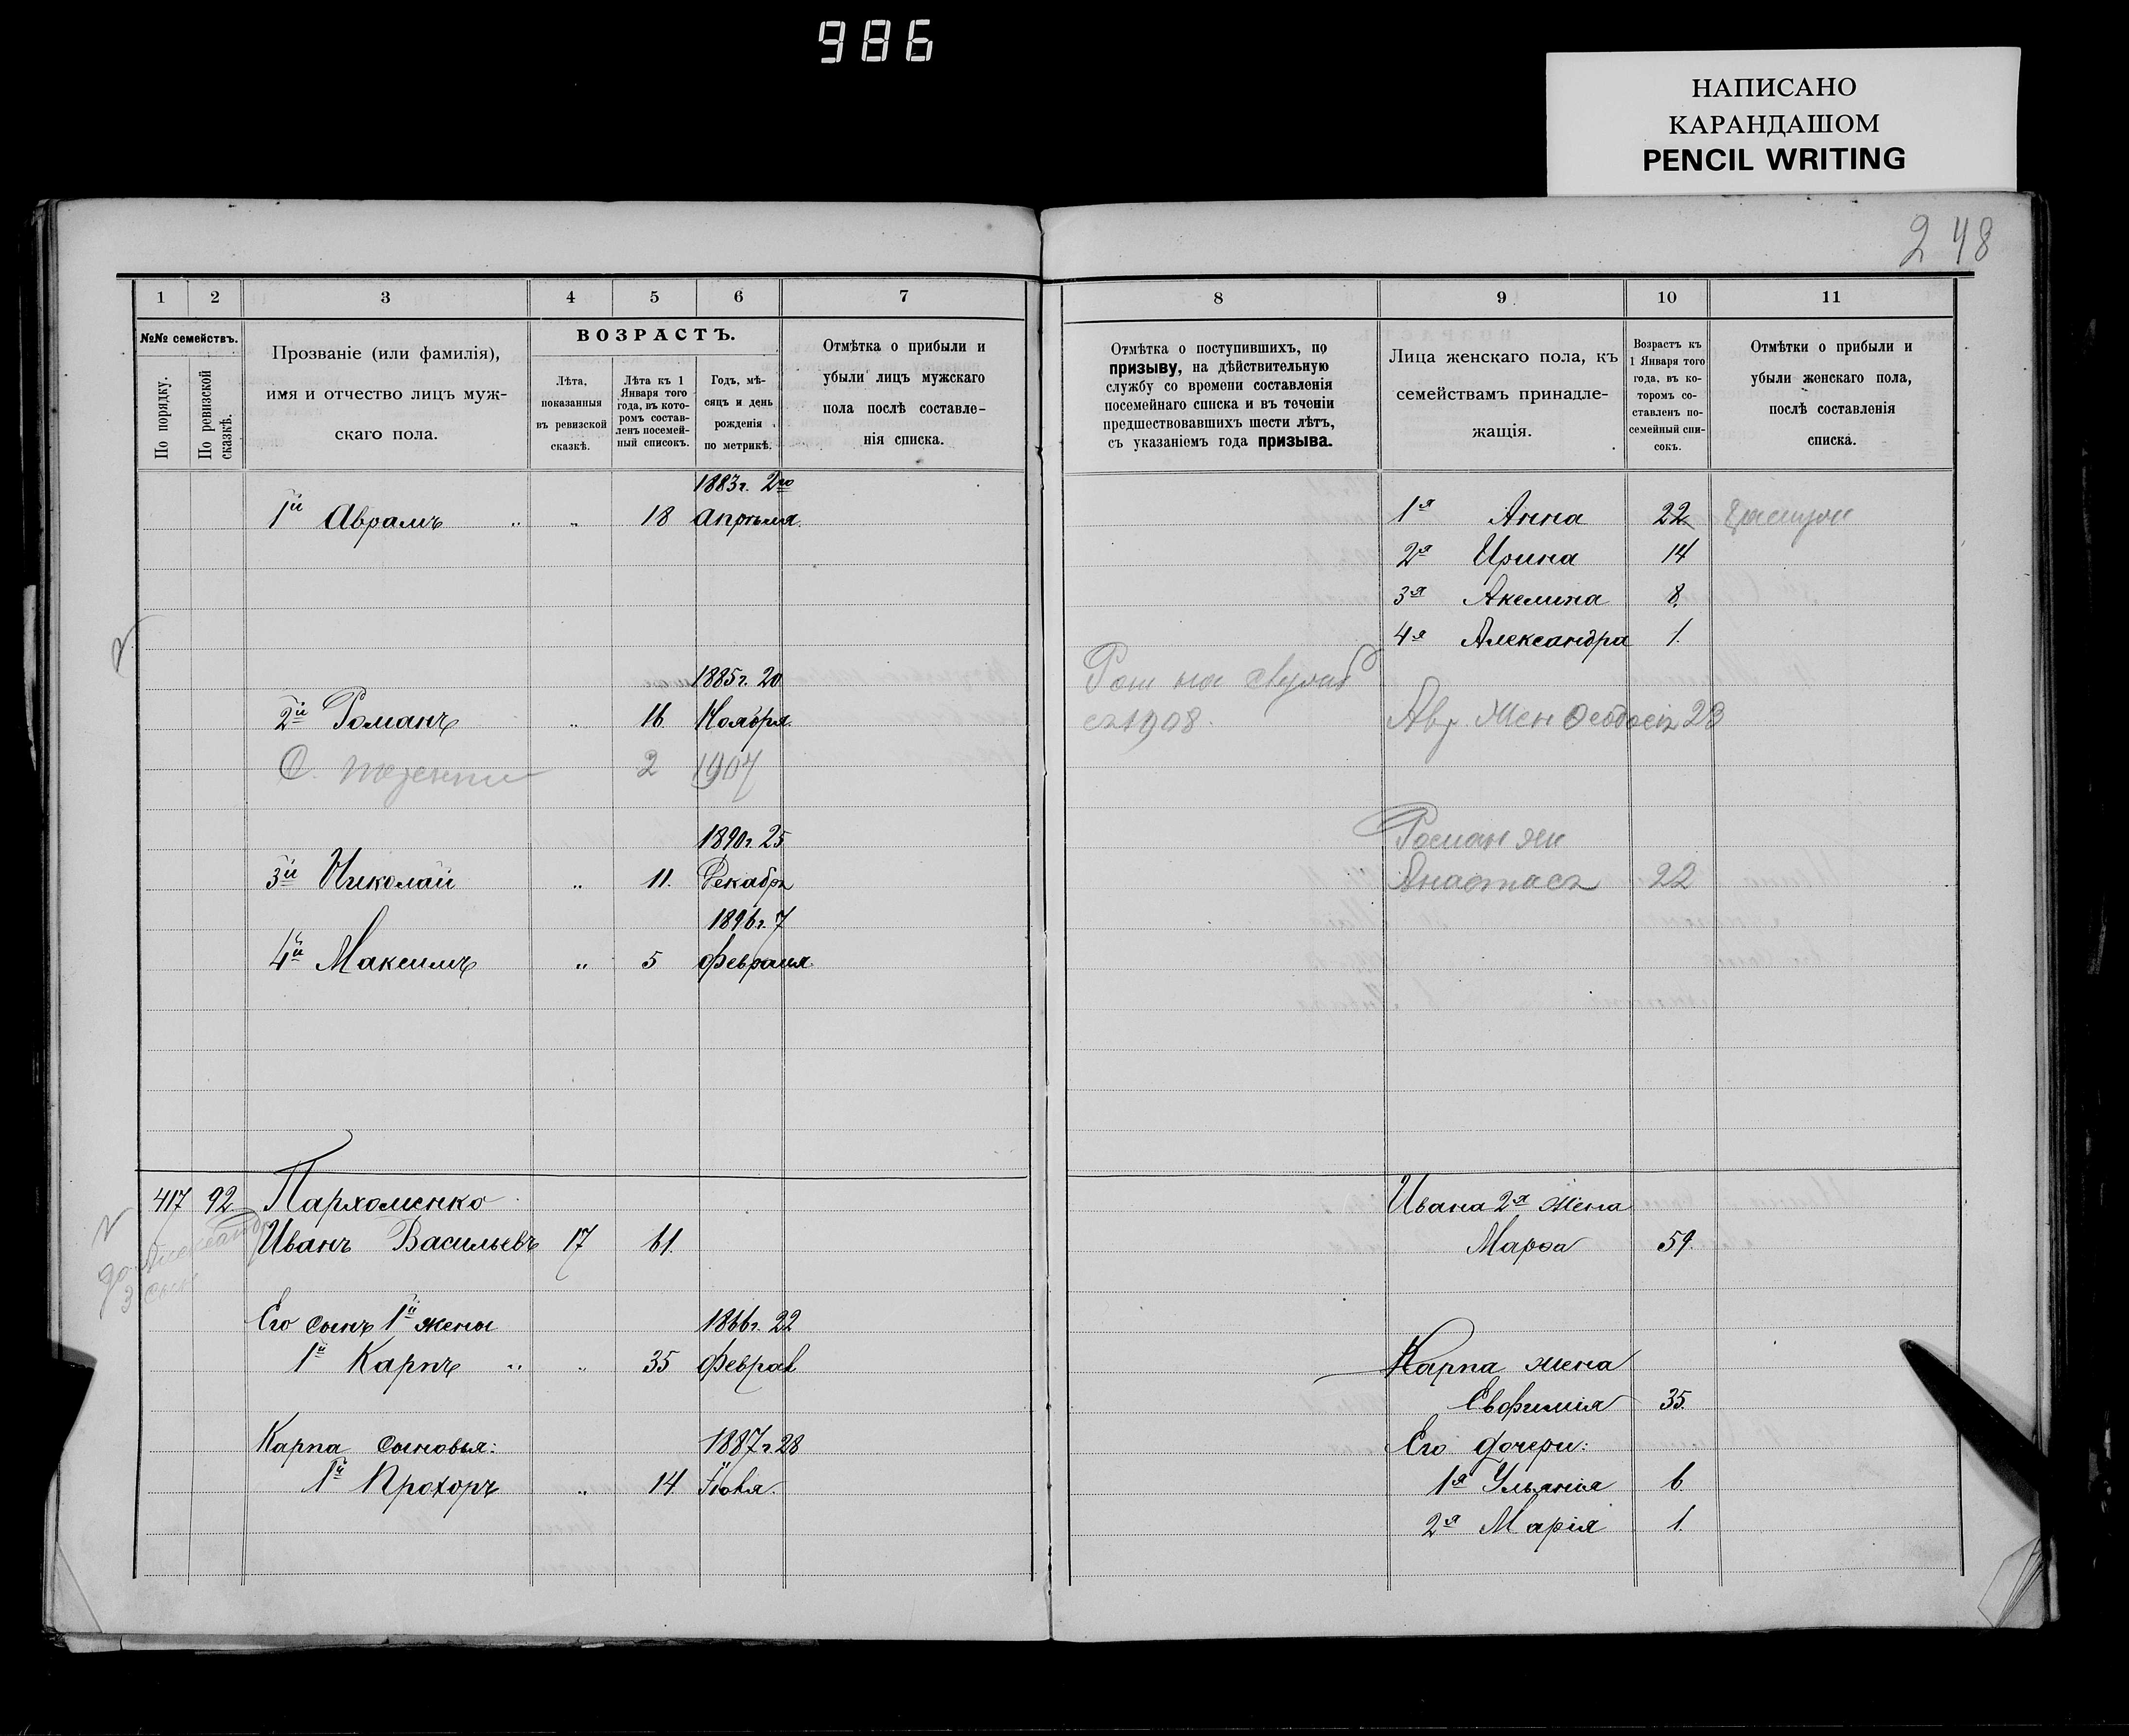 986
НАПИСАНО
КАРАНДАШОМ
PENCIL WRITING
248
1 2 3 4 5 6 7
№№ семействъ.
По порядку.
По ревизской сказкѣ.
Прозваніе (или фамилія),
имя и отчество лицъ муж-
скаго пола.
ВОЗРАСТЪ.
Лѣта,
показанныя
въ ревизской
сказкѣ.
Лѣта къ 1
Января того
года, въ кото-
ромъ состав-
ленъ посемей-
ный списокъ.
Годъ, мѣ-
сяцъ и день
рожденія
по метрикѣ.
Отмѣтка о прибыли и
убыли лицъ мужскаго
пола послѣ составле-
нія списка.
1883 г. 2го
1й Аврамъ " " 18 Апрѣля.
1885 г. 20
2й Романъ " 16 Ноября.
С. 2 1907
1890 г. 25
3й Николай " 11. Декабр
1896 г. 7
4й Максимъ " 5 Февраля.
417 92 Пархоменко
Иванъ Васильевъ 17 61.
Его сынъ 1й жены 1866 г. 22
1й Карпъ " " 35 Феврал
Карпа сыновья: 1887 г. 28
1й Прохоръ " 14. Іюля.
8 9 10 11
Отмѣтка о поступившихъ, по
призыву, на дѣйствительную
службу со времени составленія
посемейнаго списка и въ теченіи
предшествовавшихъ шести лѣтъ,
съ указаніемъ года призыва.
Лица женскаго пола, къ
семействамъ принадле-
жащія.
Возрастъ къ
1 Января того
года, въ ко-
торомъ со-
ставленъ по-
семейный спи-
сокъ.
Отмѣтки о прибыли и
убыли женскаго пола,
послѣ составленія
списка.
1я Анна 22
2я Ирина 14
3я Акелина 8.
4я Александра 1.
Ром на служб
съ 1908. Авр. жен Феодосія 23
Роман жен
Анастас 22
Ивана 2я жена
Марѳа 59.
Карпа жена
Евфимія 35.
Его дочери:
1я Ульянія 6.
2я Марія 1.